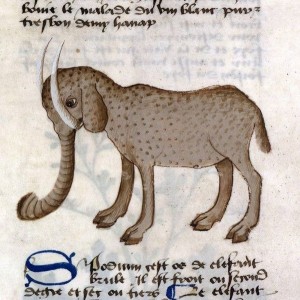 boive le malade du vin blanc pur
tresbon demy hanap
Spodium cest os de elefant
brule il est froit ou second
degre et sec ou tiers Le elefant